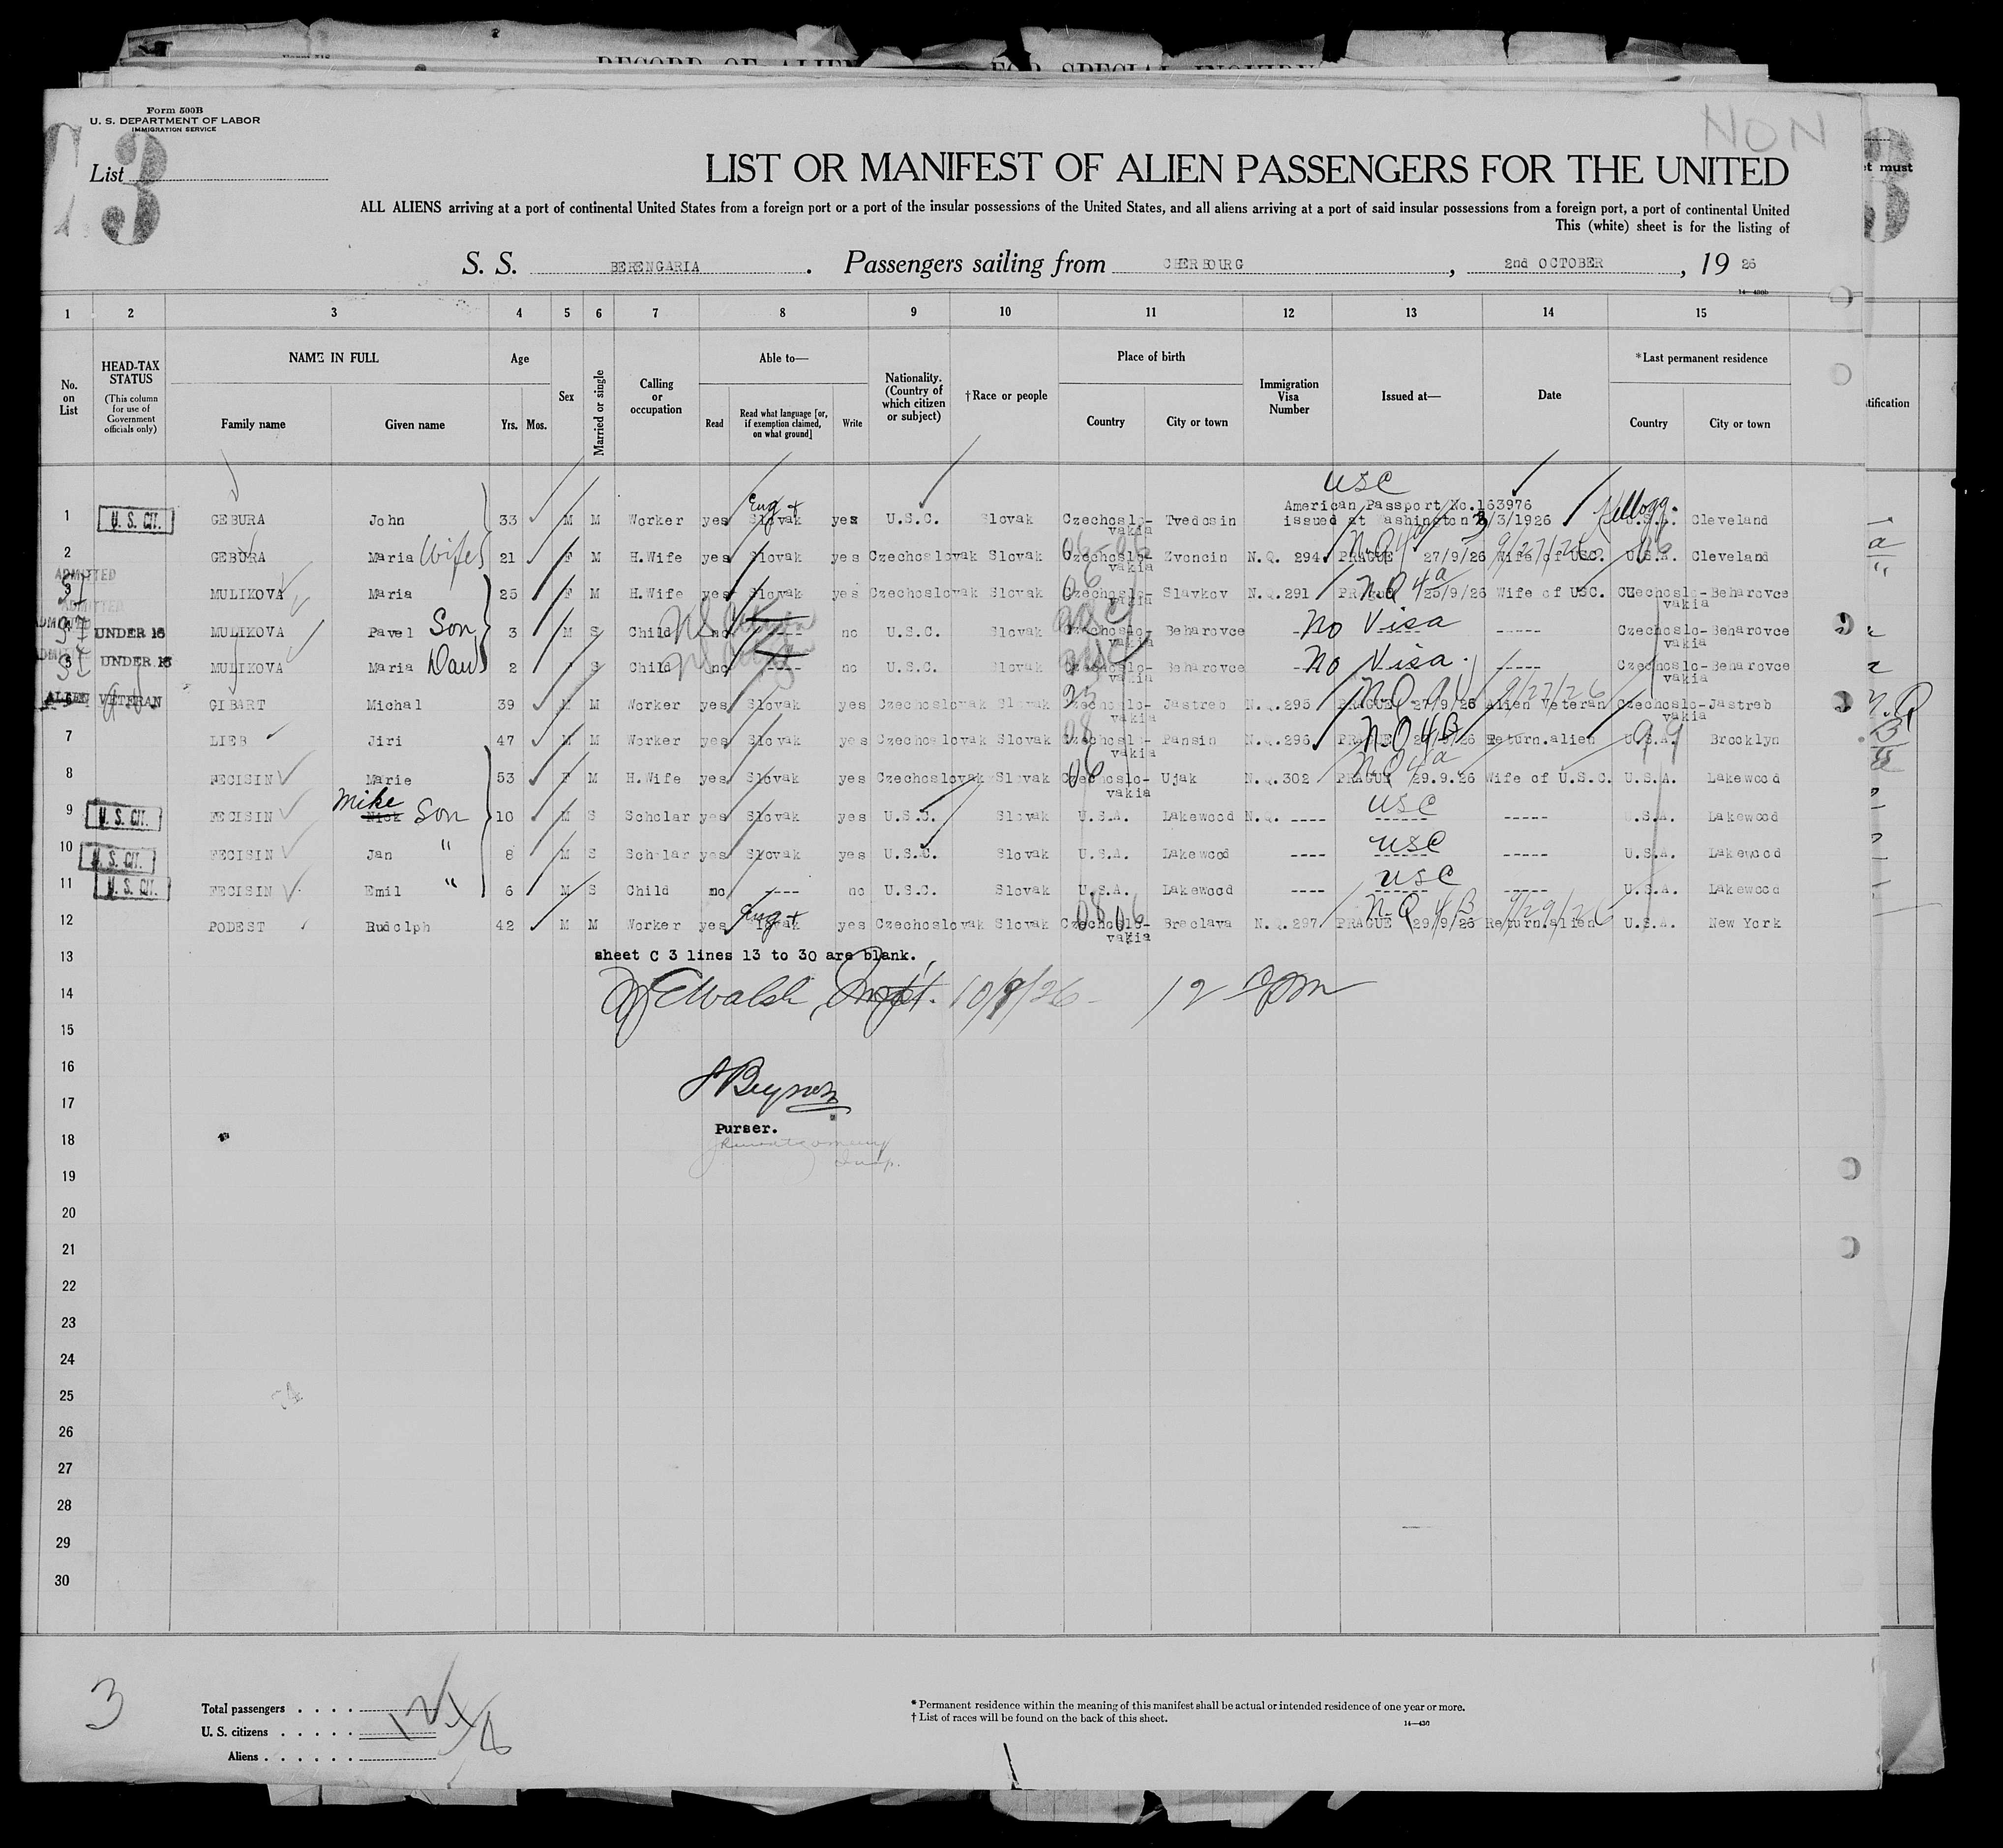 RECORD OF ALIEN FOR SPECIAL INQUIRY
Form 500B
U. S. DEPARTMENT OF LABOR
IMMIGRATION SERVICE
NON
List 3
LIST OR MANIFEST OF ALIEN PASSENGERS FOR THE UNITED
et must
ALL ALIENS arriving at a port of continental United States from a foreign port or a port of the insular possessions of the United States, and all aliens arriving at a port of said insular possessions from a foreign port, a port of continental United
This (white) sheet is for the listing of
S. S. BERENGARIA. Passengers sailing from CHERBOURG, 2nd OCTOBER, 19 26
14-430b
1 2 3 4 5 6 7 8 9 10 11 12 13 14 15
No. on List
HEAD-TAX STATUS (This column for use of Government officials only)
NAME IN FULL
Family name Given name
Age
Yrs. Mos.
Sex
Married or single
Calling or occupation
Able to—
Read Read what language [or, if exemption claimed, on what ground] Write
Nationality. (Country of which citizen or subject)
†Race or people
Place of birth
Country City or town
Immigration Visa Number
Issued at—
Date
*Last permanent residence
Country City or town
tification
USC
1 U. S. CIT. GEBURA John 33 M M Worker yes Eng + Slovak yes U.S.C. Slovak Czechoslo-vakia Tvedosin American Passport No.163976 issued at Washington 3/3/1926 Kellogg. U.S.A. Cleveland
2 GEBURA Maria Wife 21 F M H.Wife yes Slovak yes Czechoslovak Slovak Czechoslo-vakia Zvoncin N.Q. 294 PRAGUE 27/9/26 9/27/26 Wife of USC. U.S.A. Cleveland
ADMITTED
3 SI MULIKOVA Maria 25 F M H.Wife yes Slovak yes Czechoslovak Slovak Czechoslo-vakia Slavkov N.Q.291 PRAGUE NQ 4a 25/9/26 Wife of USC. Czechoslo-vakia Beharovce
ADMITTED
4 SI UNDER 16 MULIKOVA Pavel Son 3 M S Child no ---- no U.S.C. Slovak Czechoslo-vakia USC Beharovce No Visa ----- Czechoslo-vakia Beharovce
5 SI UNDER 16 MULIKOVA Maria Dau 2 F S Child no ---- no U.S.C. Slovak Czechoslo-vakia USC Beharovce No Visa. ----- Czechoslo-vakia Beharovce
ALIEN VETERAN GIBART Michal 39 M M Worker yes Slovak yes Czechoslovak Slovak Czechoslo-vakia Jastreb N.Q.295 PRAGUE 27/9/26 9/27/26 Alien Veteran Czechoslo-vakia Jastreb
7 LIEB Jiri 47 M M Worker yes Slovak yes Czechoslovak Slovak 08 Czechoslo-vakia Pansin N.Q.296 PRAGUE NQ 4B Return.alien 99 U.S.A. Brooklyn
8 FECISIN Marie 53 F M H.Wife yes Slovak yes Czechoslovak Slovak 06 Czechoslo-vakia Ujak N.Q.302 PRAGUE NQ 4a 29.9.26 Wife of U.S.C. U.S.A. Lakewood
9 U. S. CIT. FECISIN Nick Mike Son 10 M S Scholar yes Slovak yes U.S.C. Slovak U.S.A. Lakewood N.Q. ---- USC ----- U.S.A. Lakewood
10 U. S. CIT. FECISIN Jan " 8 M S Scholar yes Slovak yes U.S.C. Slovak U.S.A. Lakewood ---- USC ----- U.S.A. Lakewood
11 U. S. CIT. FECISIN Emil " 6 M S Child no ---- no U.S.C. Slovak U.S.A. Lakewood ---- USC ----- U.S.A. Lakewood
12 PODEST Rudolph 42 M M Worker yes Eng + Slovak yes Czechoslovak Slovak Czechoslo-vakia Breclava N.Q.297 PRAGUE N.Q 4B 29/9/26 9/29/26 Return.alien U.S.A. New York
13 sheet C 3 lines 13 to 30 are blank.
14 Walsh Inspt. 10/8/26 - 12 pm
15
16
17 Beynon
Purser.
18 Montgomery
Insp.
19
20
21
22
23
24
25
26
27
28
29
30
3
Total passengers . . . . 12
U. S. citizens . . . . .
Aliens . . . . . .
* Permanent residence within the meaning of this manifest shall be actual or intended residence of one year or more.
† List of races will be found on the back of this sheet.
14—430